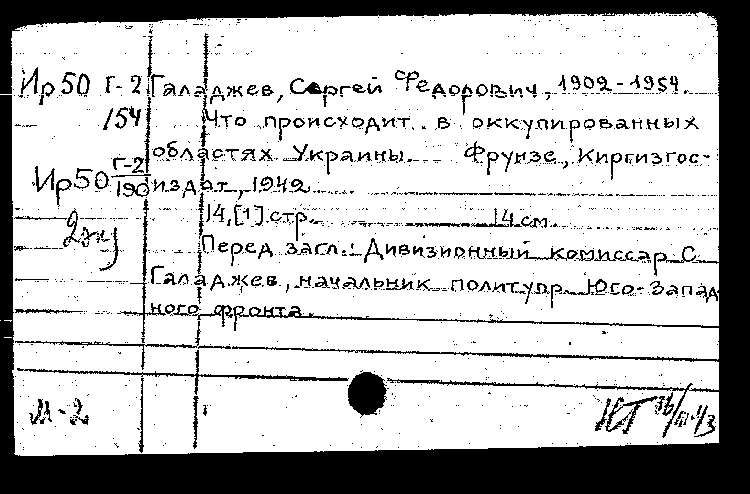 Ир50 Г-2 Галаджев, Сергей Федорович, 1902-1954.
154 Что происходит в оккупированных
областях Украины. Фрунзе, Киргизгос-
Ир50 Г-2/190 издат, 1942
14,[1] стр. 14 см.
2экз
Перед загл.: Дивизионный комиссар С.
Галаджев, начальник политупр. Юго-Запад
ного фронта.
М-2
НТ